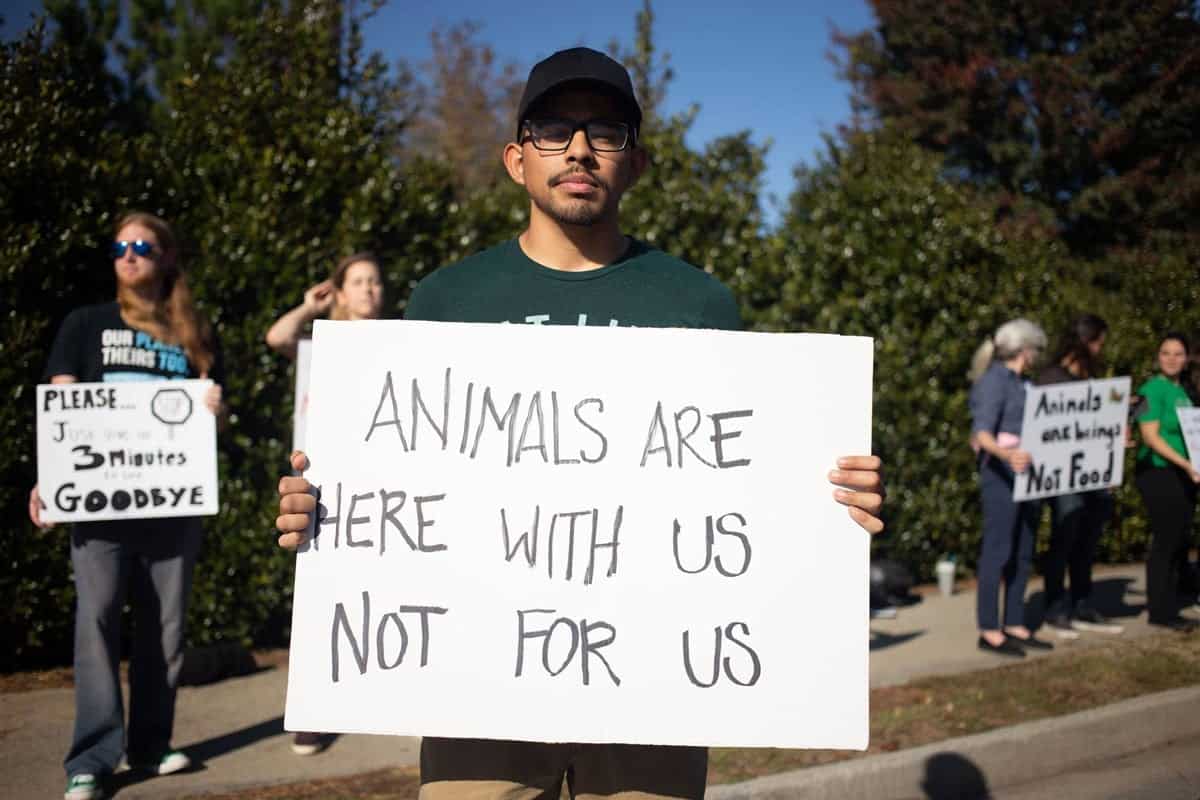 OUR PLANET
THEIRS TOO
PLEASE...
3 Minutes
GOODBYE
ANIMALS ARE
HERE WITH US
NOT FOR US
Animals
are beings
Not Food